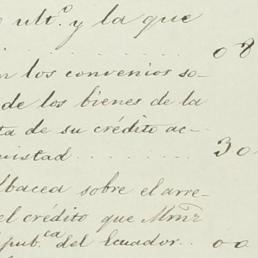 ultº. y la que
08
los convenios so-
de los bienes de la
ta de su crédito ac-
mistad . . . . . . . . . 30
lbacea sobre el arre-
el crédito que Mmr
pub.ca del Ecuador . . 00